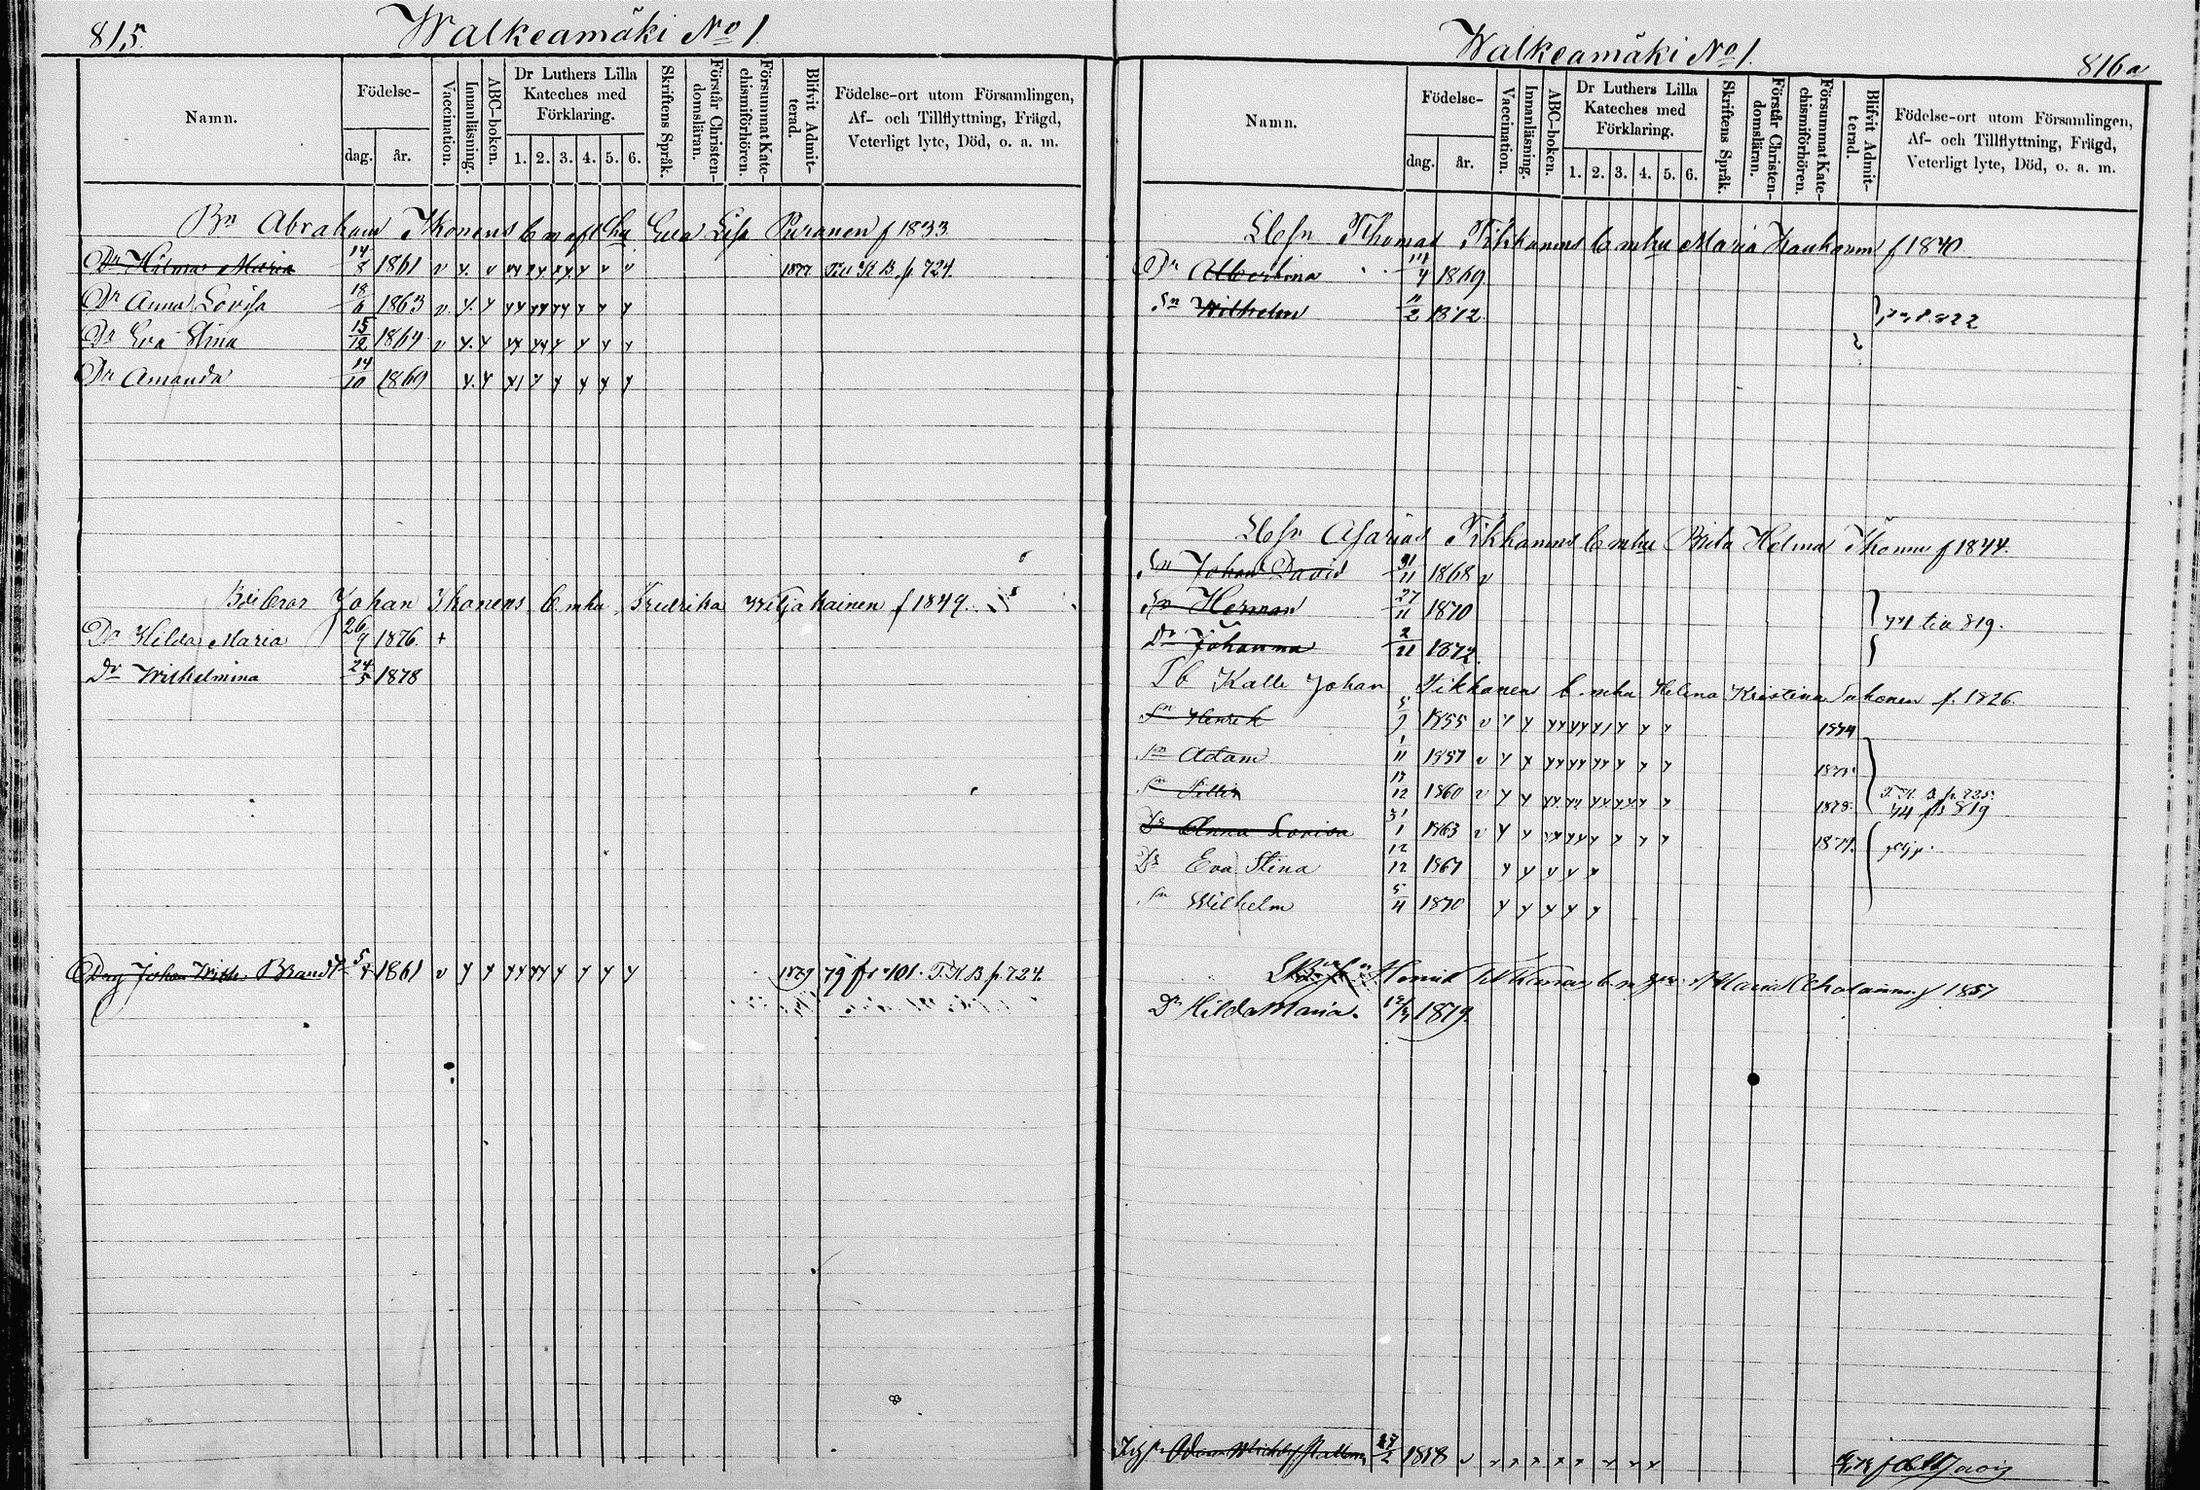 815. Walkeamäki No 1.
Namn. Födelse- dag. år. Vaccination. Innanläsning. ABC-boken. Dr Luthers Lilla Kateches med Förklaring. 1. 2. 3. 4. 5. 6. Skriftens Språk. Förstår Christendomsläran. Försummat Katechismiförhören. Blifvit Admitterad. Födelse-ort utom Församlingen, Af- och Tillflyttning, Frägd, Veterligt lyte, Död, o. a. m.
Bn Abraham Ikonens b m afl hu Eva Lisa Puranen f 1833
Dr Hilma Maria 14/8 1861 v y. v yy yy yy y v v 1877 K B. p 724.
Dr Anna Lovisa 18/6 1863 v. y. y yy yy yy y y y
Dr Eva Stina 15/12 1864 v y. y yy yy y y y y
Dr Amanda 14/10 1869 y. y y y y y y y
Johan Ikonens b. m hu Fredrika Wiljakainen f 1849.
Dr Hilda Maria 26/9 1876. +
Dr Wilhelmina 24/5 1878
Drg Johan Wilh. Brandt 5/4 1861 v y y yy yy y y y y 1879 79 fr 101. T. K. B p. 724.
Walkeamäki No 1. 816 a
Namn. Födelse- dag. år. Vaccination. Innanläsning. ABC-boken. Dr Luthers Lilla Kateches med Förklaring. 1. 2. 3. 4. 5. 6. Skriftens Språk. Förstår Christendomsläran. Försummat Katechismiförhören. Blifvit Admitterad. Födelse-ort utom Församlingen, Af- och Tillflyttning, Frägd, Veterligt lyte, Död, o. a. m.
Thomas Tikkanens b m hu Maria f 1840.
Dr Albertina 1869.
Sn Wilhelm 11/2 1872. 822
Asarias Tikkanens b m hu Brita Helena Ikonen f 1844.
Sn Johan David 31/11 1868 v
Sn Herman 27/11 1870
Dr Johanna 2/11 1872. 819.
Kalle Johan Tikkanens b. m hu Helena Kristina f. 1826.
Sn Henrik 5/9 1855 v y y yy yy yy y y y 1874
Sn Adam 1/11 1857 v y y yy yy yy y y y
Sn Petter 12 1860 v y y yy yy yy yy y y 1878. T. K. B p. 725.
Dr Anna Lovisa 31/1 1863 v y y yy yy y y y y 1879. 819
Dr Eva Stina 12/12 1867 y y y y y
Sn Wilhelm 5/4 1870 y y y y y
Henrik Tikkanens b. m Maria f 1857
Dr Hilda Maria. 1879.
Adam 27/2 1858 v